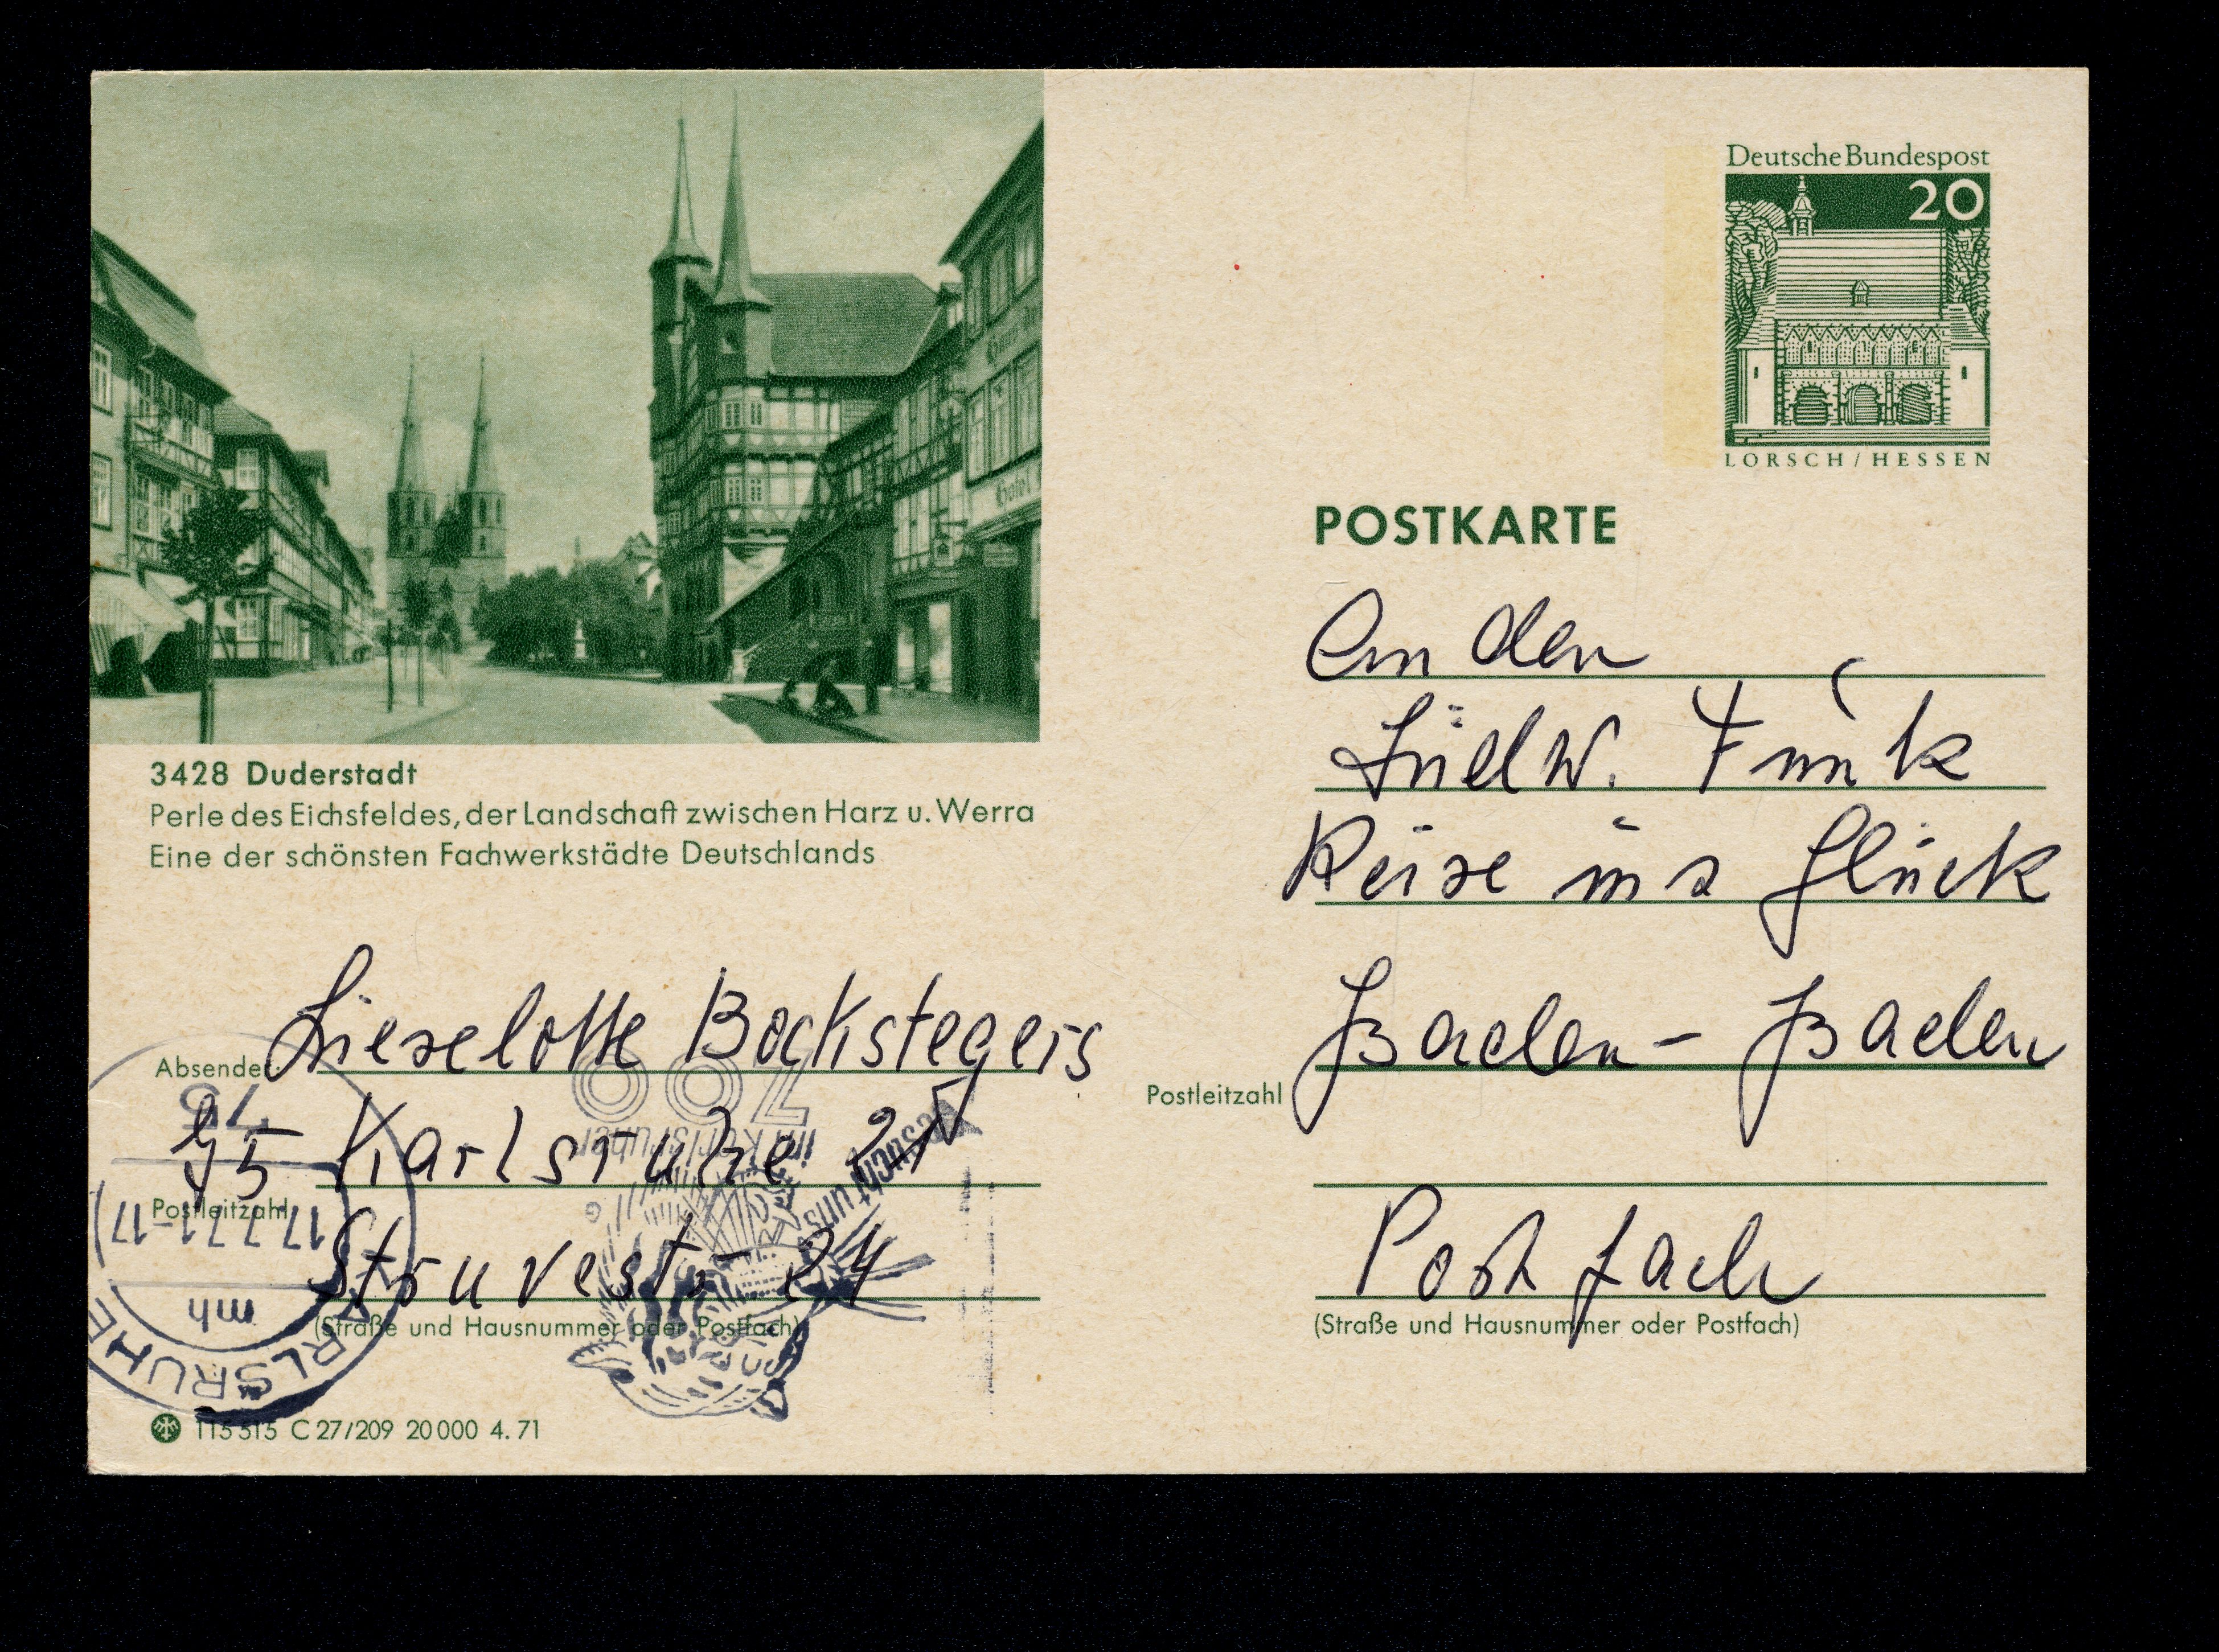 Deutsche Bundespost
20
LORSCH/HESSEN
POSTKARTE
An den
Südw. Funk
Reise ins Glück
Baden-Baden
Postleitzahl
Postfach
(Straße und Hausnummer oder Postfach)
Hotel
3428 Duderstadt
Perle des Eichsfeldes, der Landschaft zwischen Harz u. Werra
Eine der schönsten Fachwerkstädte Deutschlands
Absender:
Lieselotte Bockstegers
75 Karlsruhe 21
Postleitzahl
Struvestr 24
(Straße und Hausnummer oder Postfach)
115 515 C 27/209 20 000 4. 71
75
17.7.71-17
mh
KARLSRUHE
Besucht uns
im Karlsruher
ZOO